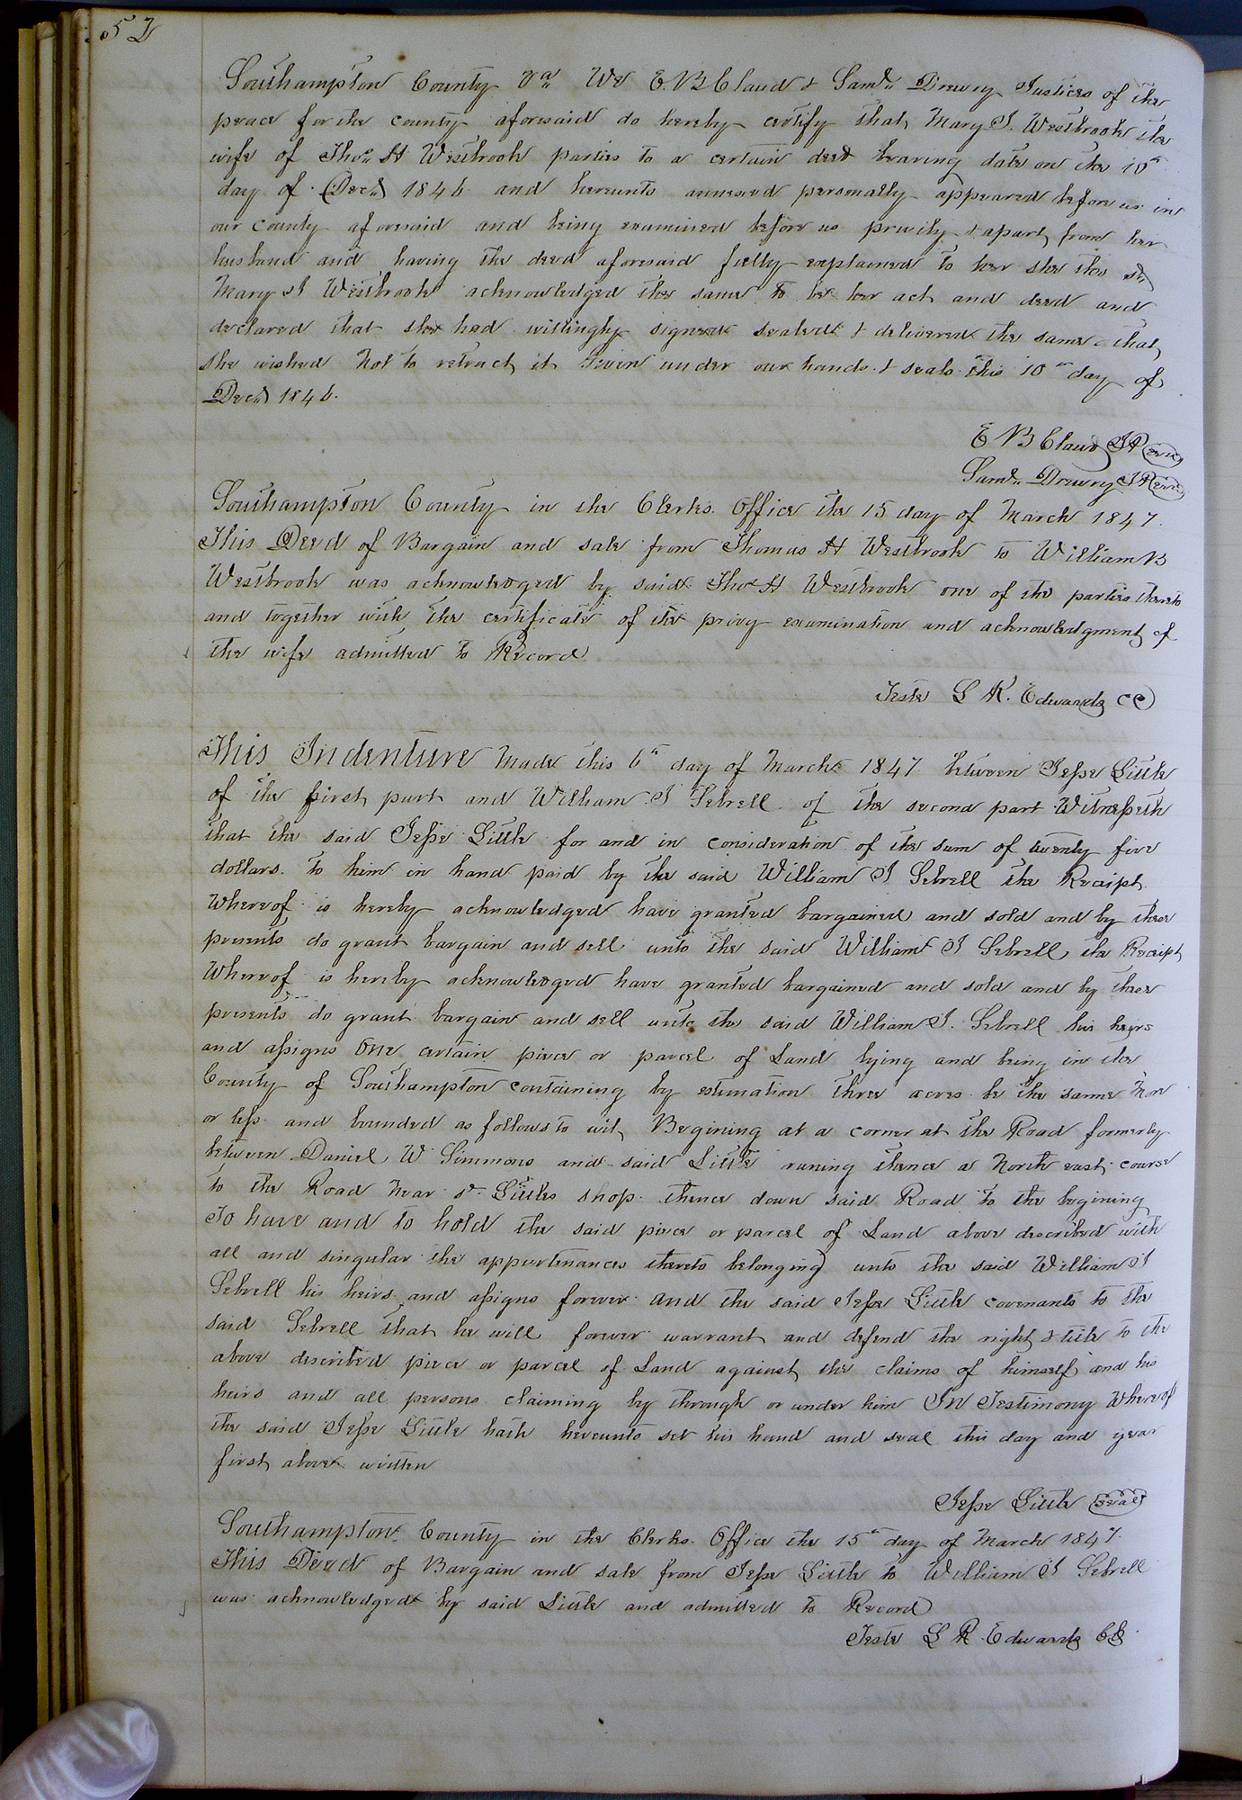 52
Southampton County Va We E. B Claud & Saml. Drewry Justices of the
peace for the county aforesaid do hereby certify that Mary J. Westbrook the
wife of Thos. H Westbrook parties to a certain deed bearing date on the 10th
day of Decr. 1846 and hereunto annexed personally appeared before us in
our County aforesaid and being examined before us privily & apart from her
husband and having the deed aforesaid fully explained to her she the sd
Mary J Westbrook acknowledged the same to be her act and deed and
declared that she had willingly signed sealed & delivered the same & that
she wished not to retract it Given under our hands & seals this 10th day of
Decr. 1846.
E B Claud JP seal
Saml. Drewry JP seal
Southampton County in the Clerks Office the 15 day of March 1847.
This Deed of Bargain and sale from Thomas H Westbrook to William B
Westbrook was acknowledged by said Thos H Westbrook one of the parties thereto
and together with the certificate of the privy examination and acknowledgment of
the wife admitted to Record
Teste L R. Edwards CC
This Indenture Made this 6th day of March 1847 between Jesse Little
of the first part and William J Sebrell of the second part Witnesseth
that the said Jesse Little for and in consideration of the sum of twenty five
dollars. to him in hand paid by the said William J Sebrell the Receipt
Whereof is hereby acknowledged have granted bargained and sold and by these
presents do grant bargain and sell unto the said William J Sebrell, the Receipt
Whereof is hereby acknowledged have granted bargained and sold and by these
presents do grant bargain and sell unto the said William J. Sebrell his heirs
and assigns One certain piece or parcel of Land lying and being in the
County of Southampton containing by estimation three acres be the same More
or less and bounded as follows to wit, Begining at a corner at the Road formerly
between Daniel W Simmons and said Little runing thence a North east course
to the Road Near sd. Littles shop thence down said Road to the begining
To have and to hold the said piece or parcel of Land above described with
all and singular the appurtenances thereto belonging unto the said William J
Sebrell his heirs and assigns forever and the said Jesse Little covenants to the
said Sebrell that he will forever warrant and defend the right & title to the
above described piece or parcel of Land against the claims of himself and his
heirs and all persons claiming by through or under him In Testimony Whereof
the said Jesse Little hath hereunto set his hand and seal this day and year
first above written
Jesse Little seal
Southampton County in the Clerks Office the 15th day of March 1847.
This Deed of Bargain and sale from Jesse Little to William J Sebrell
was acknowledged by said Little and admitted to Record
Teste L R. Edwards CC